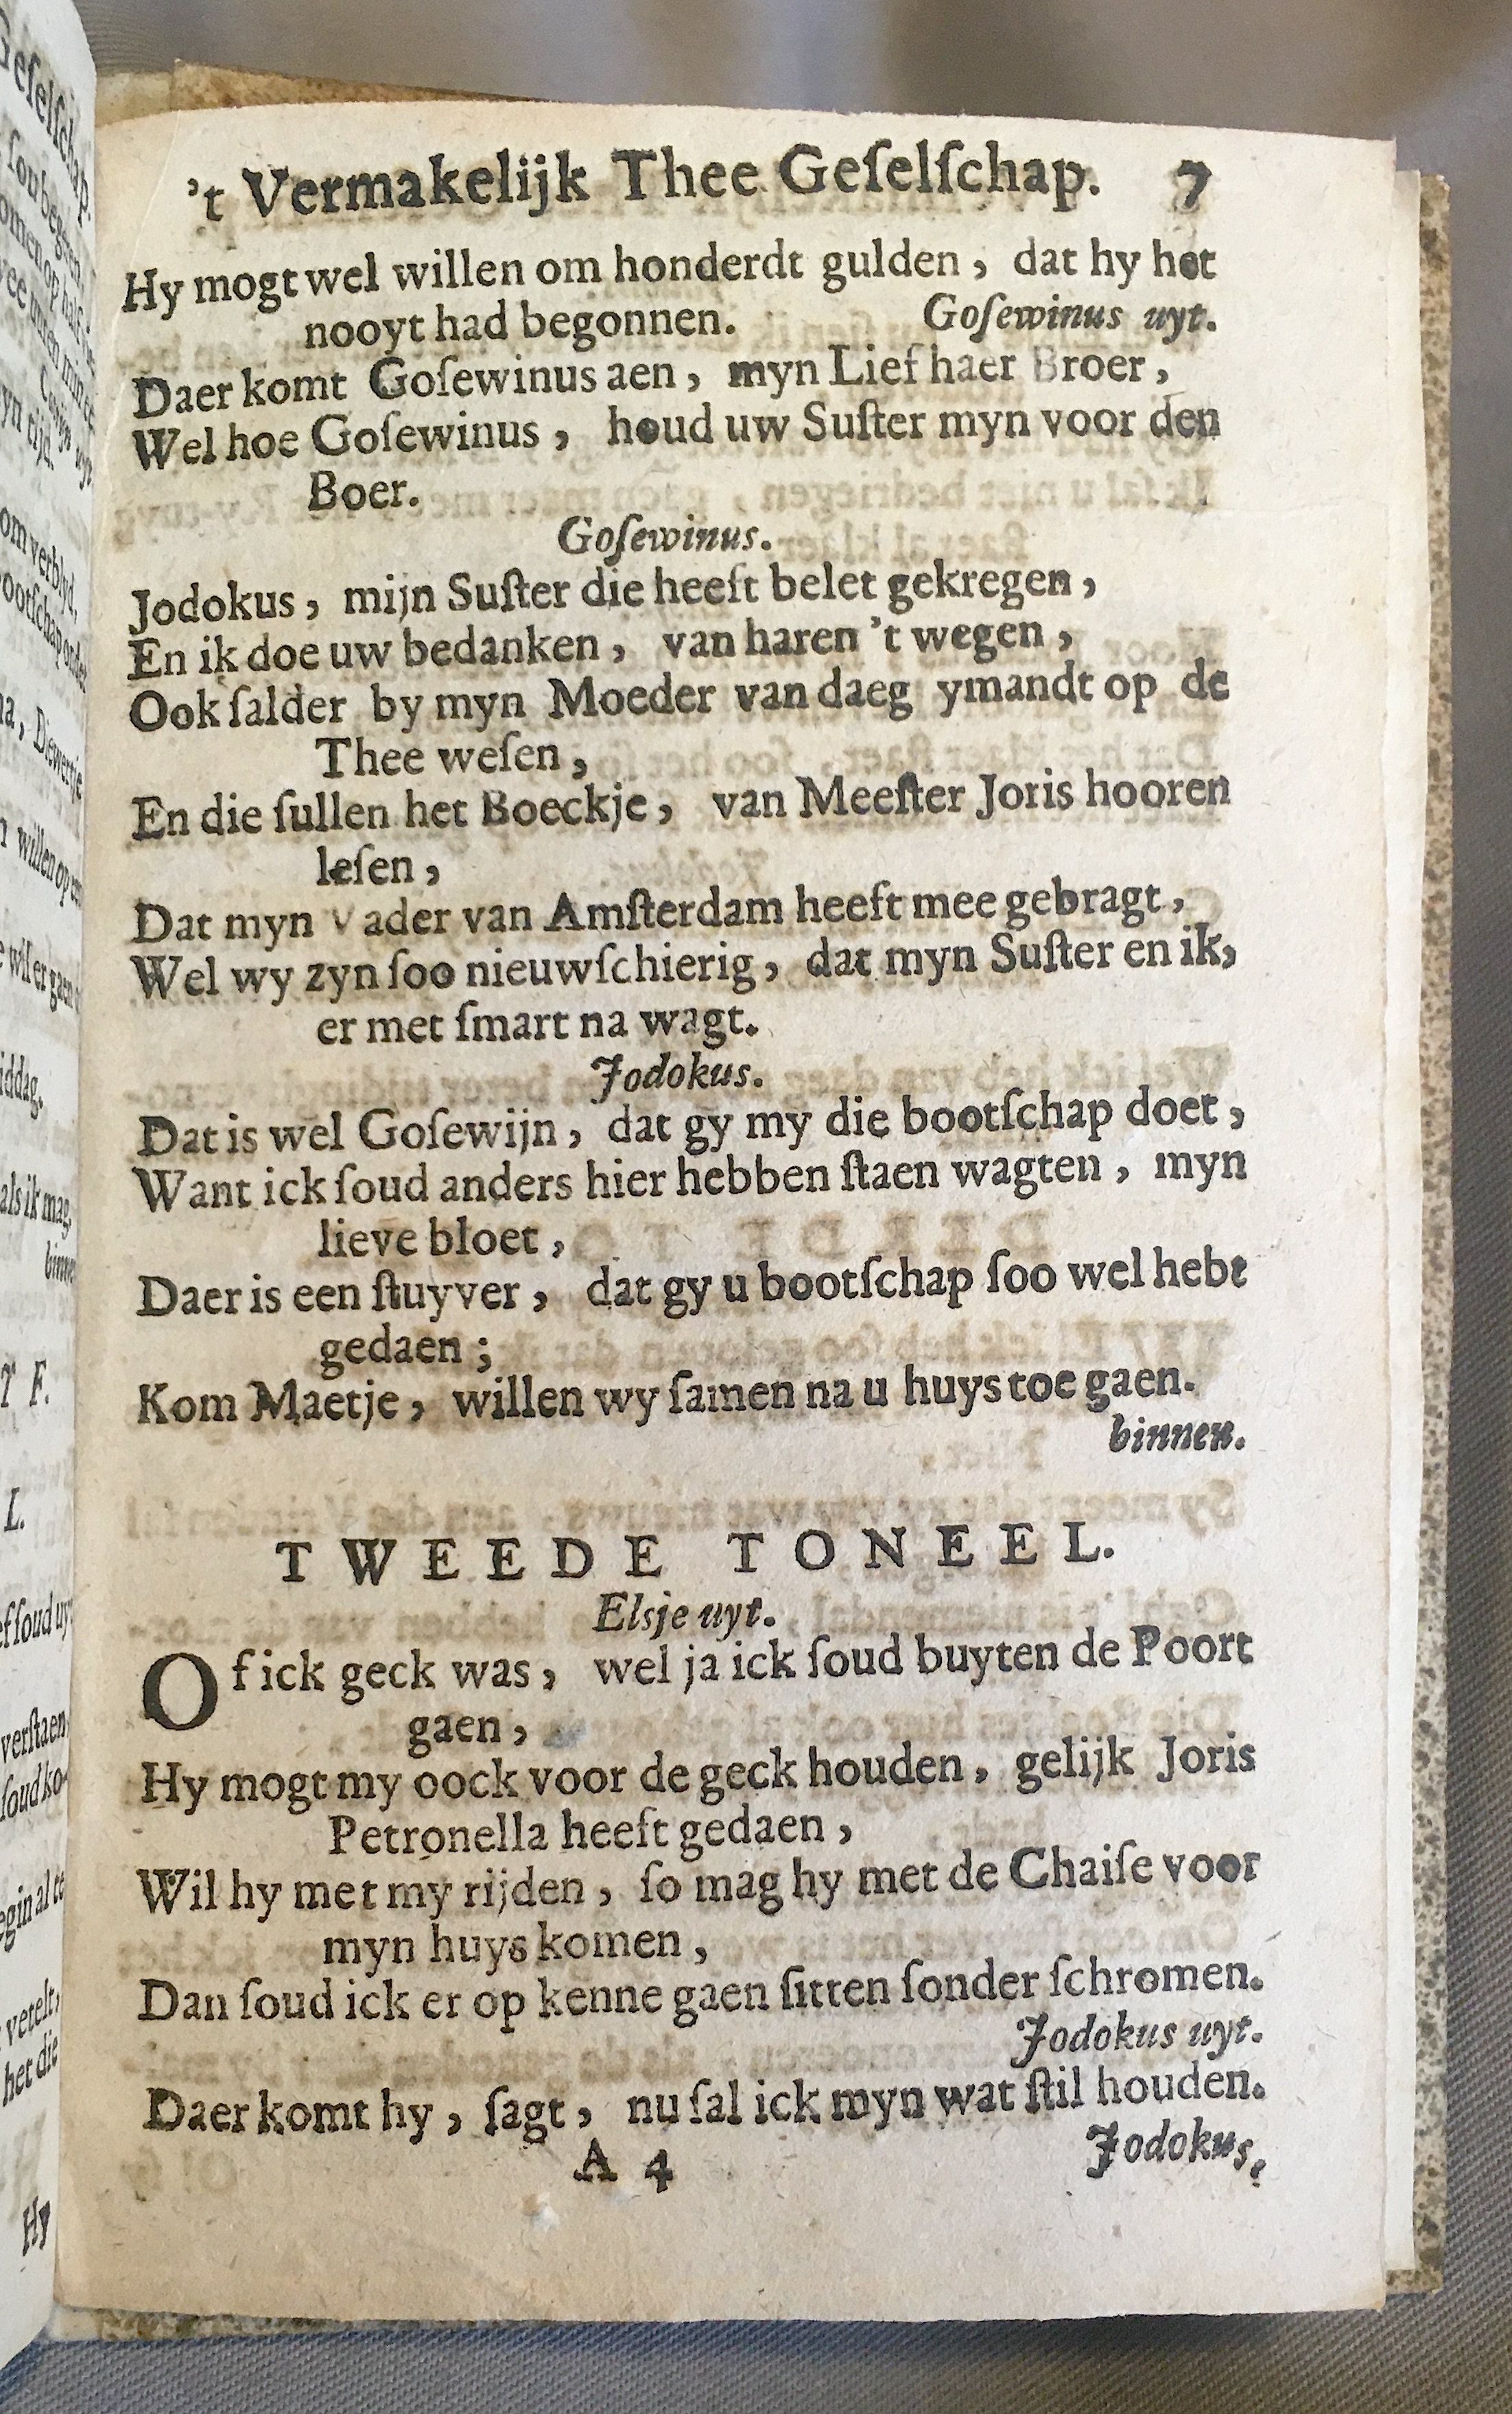 't Vermakelijk Thee Geſelſchap. 7
Hy mogt wel willen om honderdt gulden, dat hy het
nooyt had begonnen. Goſewinus uyt.
Daer komt Goſewinus aen, myn Lief haer Broer,
Wel hoe Goſewinus, houd uw Suſter myn voor den
Boer.
Goſewinus.
Jodokus, mijn Suſter die heeft belet gekregen,
En ik doe uw bedanken, van haren 't wegen,
Ook ſalder by myn Moeder van daeg ymandt op de
Thee weſen,
En die ſullen het Boeckje, van Meeſter Joris hooren
leſen,
Dat myn Vader van Amſterdam heeft mee gebragt,
Wel wy zyn ſoo nieuwſchierig, dat myn Suſter en ik,
er met ſmart na wagt.
Jodokus.
Dat is wel Goſewijn, dat gy my die bootſchap doet,
Want ick ſoud anders hier hebben ſtaen wagten, myn
lieve bloet,
Daer is een ſtuyver, dat gy u bootſchap ſoo wel hebt
gedaen;
Kom Maetje, willen wy ſamen na u huys toe gaen.
binnen.
TWEEDE TONEEL.
Elsje uyt.
Of ick geck was, wel ja ick ſoud buyten de Poort
gaen,
Hy mogt my oock voor de geck houden, gelijk Joris
Petronella heeft gedaen,
Wil hy met my rijden, ſo mag hy met de Chaiſe voor
myn huys komen,
Dan ſoud ick er op kenne gaen ſitten ſonder ſchromen.
Jodokus uyt.
Daer komt hy, ſagt, nu ſal ick myn wat ſtil houden.
A 4 Jodokus,